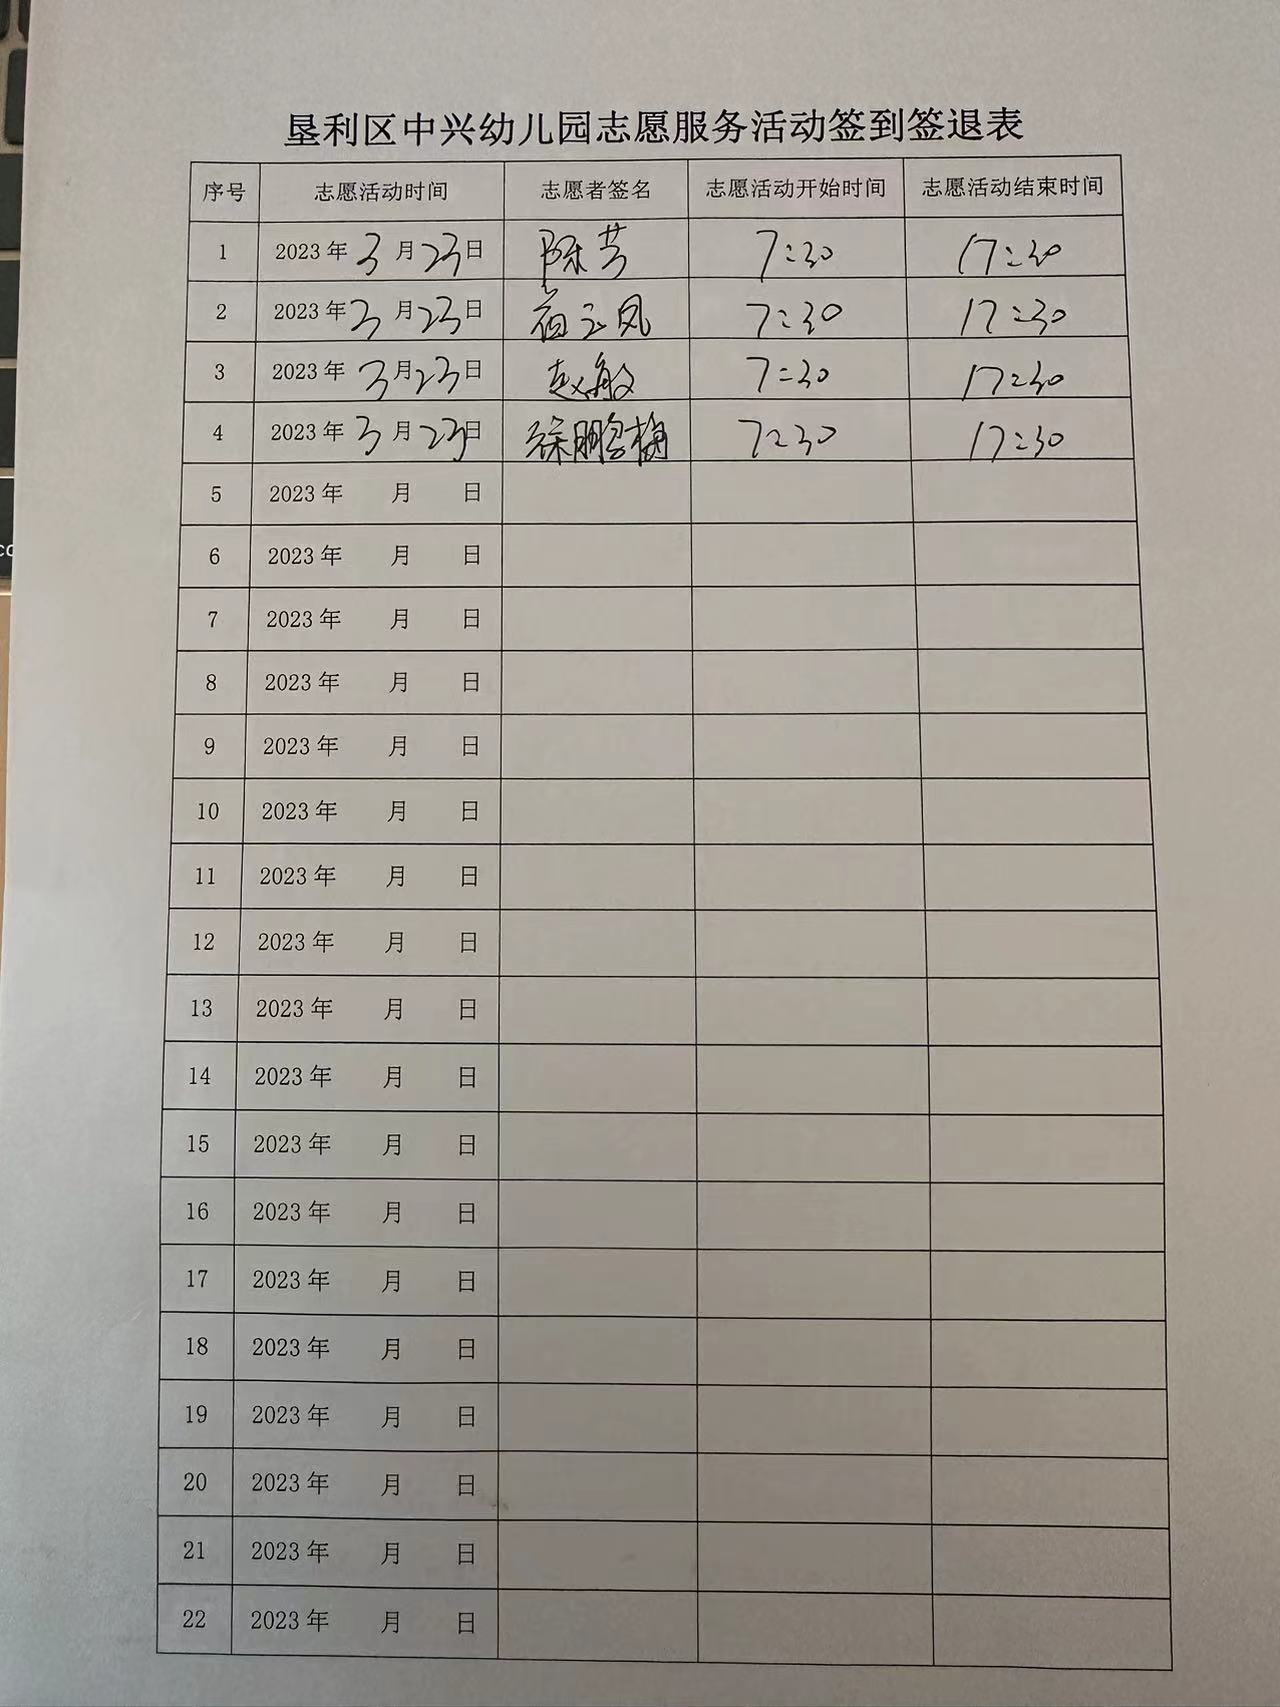 垦利区中兴幼儿园志愿服务活动签到签退表
序号 志愿活动时间 志愿者签名 志愿活动开始时间 志愿活动结束时间
1 2023年3月23日 陈芳 7:30 17:30
2 2023年3月23日 苟玉凤 7:30 17:30
3 2023年3月23日 赵敏 7:30 17:30
4 2023年3月23日 徐鹏梅 7:30 17:30
5 2023年 月 日
6 2023年 月 日
7 2023年 月 日
8 2023年 月 日
9 2023年 月 日
10 2023年 月 日
11 2023年 月 日
12 2023年 月 日
13 2023年 月 日
14 2023年 月 日
15 2023年 月 日
16 2023年 月 日
17 2023年 月 日
18 2023年 月 日
19 2023年 月 日
20 2023年 月 日
21 2023年 月 日
22 2023年 月 日